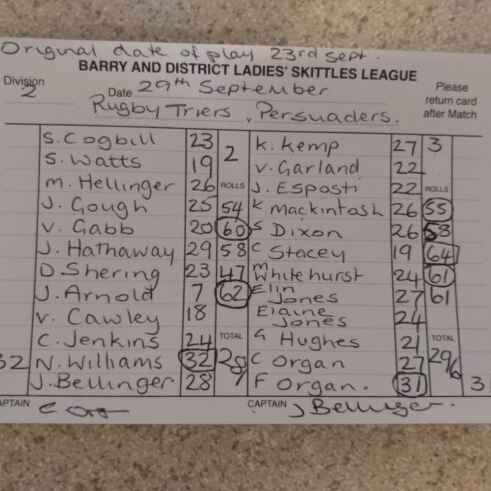 Original date of play 23rd sept.
BARRY AND DISTRICT LADIES' SKITTLES LEAGUE
Division 2 Date 29th September Please return card after Match
Rugby Triers , Persuaders.
S. Cogbill 23 2 K. Kemp 27 3
S. Watts 19 V. Garland 22
M. Hellinger 26 ROLLS J. Esposti 22 ROLLS
J. Gough 25 54 K Mackintosh 26 55
V. Gabb 20 60 S Dixon 26 58
J. Hathaway 29 58 C Stacey 19 64
D. Shering 23 47 M Whitehurst 24 61
J. Arnold 7 62 Elin Jones 27 61
V. Cawley 18 Elaine Jones 24
C. Jenkins 24 TOTAL G Hughes 21 TOTAL
32 N. Williams 32 28 C Organ 27 296
J. Bellinger 28 F Organ. 31 3
CAPTAIN J Bellinger